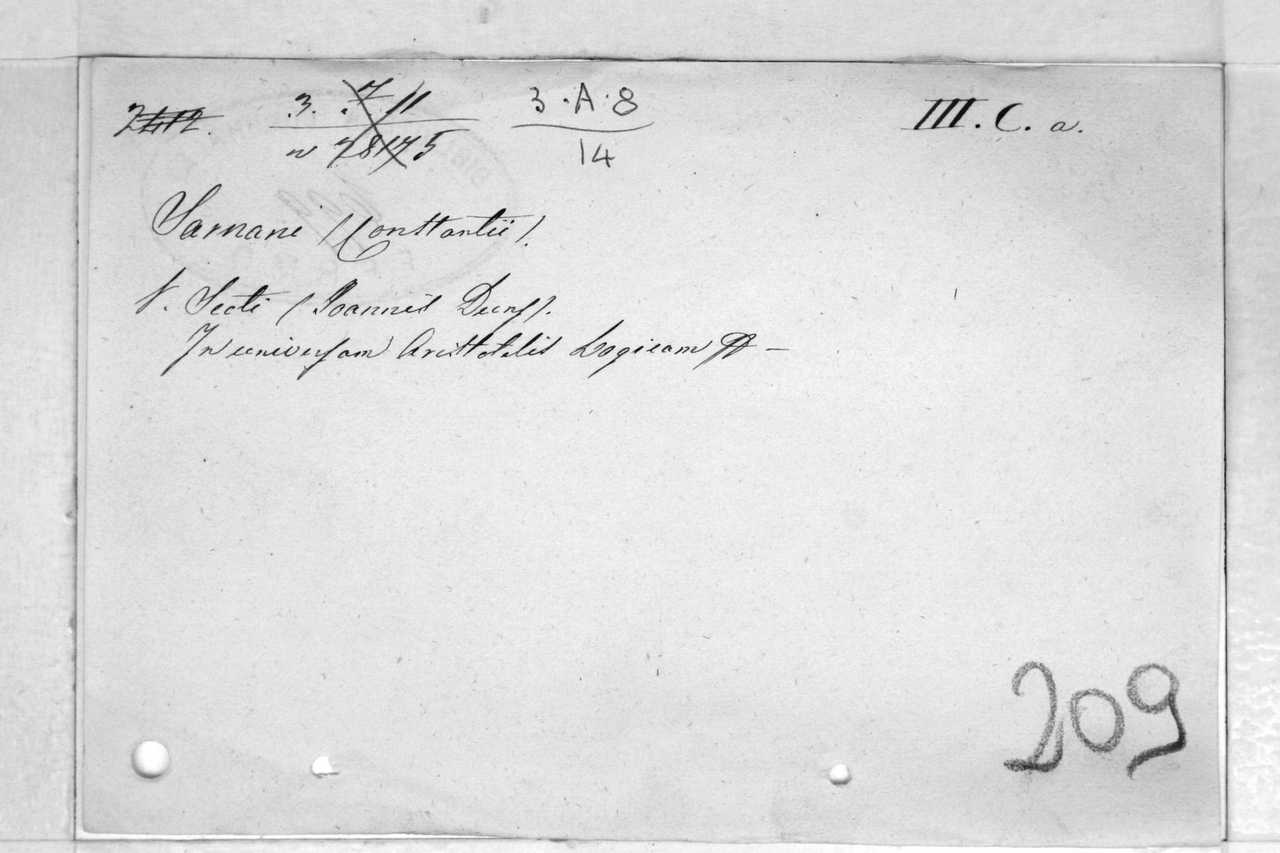 3. 7 11 3·A·8 III. C. a.
n 78175 14
Sarnani (Constantii).
V. Scoti (Joannis Duns).
In universam Aristotelis Logicam
209